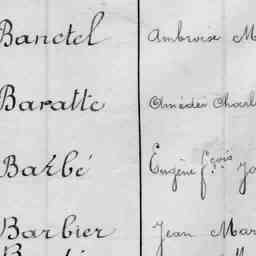 Banctel Ambroise M
Baratte Amédée Charl
Barbé Eugène f.çois
Barbier Jean Mar